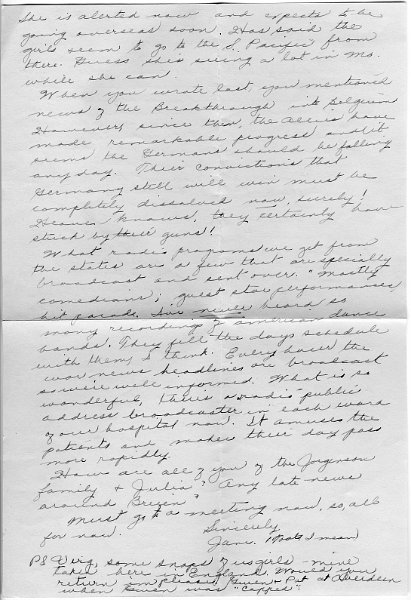 She is alerted now and expects to be
going overseas soon. Has said the
girls seem to go to the S. Pacific from
there. Guess she's seeing a lot in Mo.
while she can.
When you wrote last, you mentioned
news of the Breakthrough into Belgium
However, since then the Allies have
made remarkable progress and it
seems the Germans should be falling
any day. Their convictions that
Germany still will win must be
completely dissolved now, surely!
Heaven knows, they certainly have
stuck by their guns!
What radio programs we get from
the states are a few that are specially
broadcast and sent over. Mostly
comedians, guest star performances
hit parade. I've never heard so
many recordings of American dance
bands. They fill the days schedule
with them, I think. Every hour the
war news headlines are broadcast
so we're well informed. What is so
wonderful, there's a radio public
address broadcaster in each ward
of our hospital now. It amuses the
patients and makes their day pass
more rapidly.
How are all of you of the Jorgenson
family & Julia? Any late news
around
Must go to a meeting now, so, all
for now.
Sincerely,
Jane.
PS some snaps of us girls - mine
taken here in England. Would you
return in please & Pat at Aberdeen
when Gwen was "capped".